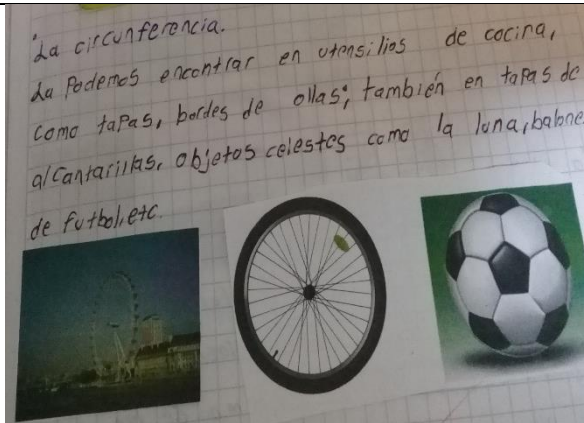 La circunferencia.
La Podemos encontrar en utensilios de cocina,
como tapas, bordes de ollas; también en tapas de
alcantarillas, objetos celestes como la luna, balone
de futbol, etc.